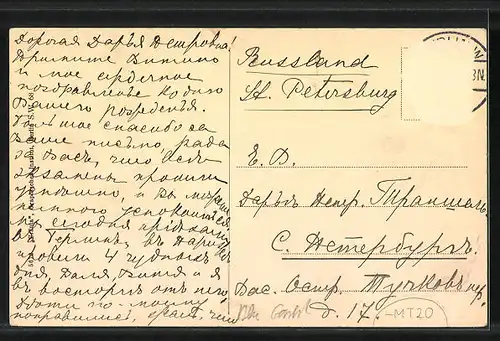 Дорогая Дарья Петровна!
Примите Витино
и мое сердечное
поздравленье ко дню
Вашего рожденья.
Большое спасибо за
Ваше письмо, рада
за Васъ, что Всѣ
экзамены прошли
успѣшно, и Вы
немного успокоились.
сегодня приѣхали
въ Берлинъ, въ Парижѣ
провели 4 чудныхъ
дня, Валя, Витя и я
въ восторгѣ отъ него.
понравилось,
Russland
St. Petersburg
Е. В.
Дарьѣ Петр. Траншель
С. Петербургъ.
Вас. Остр. Тучковъ пер.
д. 17.
-MT20